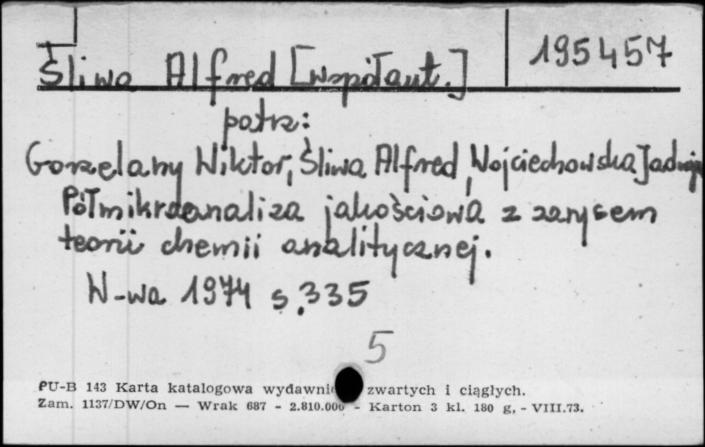 195457
Śliwa Alfred [współaut.]
patrz:
Gorzelany Wiktor, Śliwa Alfred, Wojciechowska Jadwiga
Półmikroanaliza jakościowa z zarysem
teorii chemii analitycznej.
W-wa 1974 s. 335
5
PU-B 143 Karta katalogowa zwartych i ciągłych.
Zam. 1137/DW/On — Wrak 687 - 2.810.000 - Karton 3 kl. 180 g. - VIII.73.